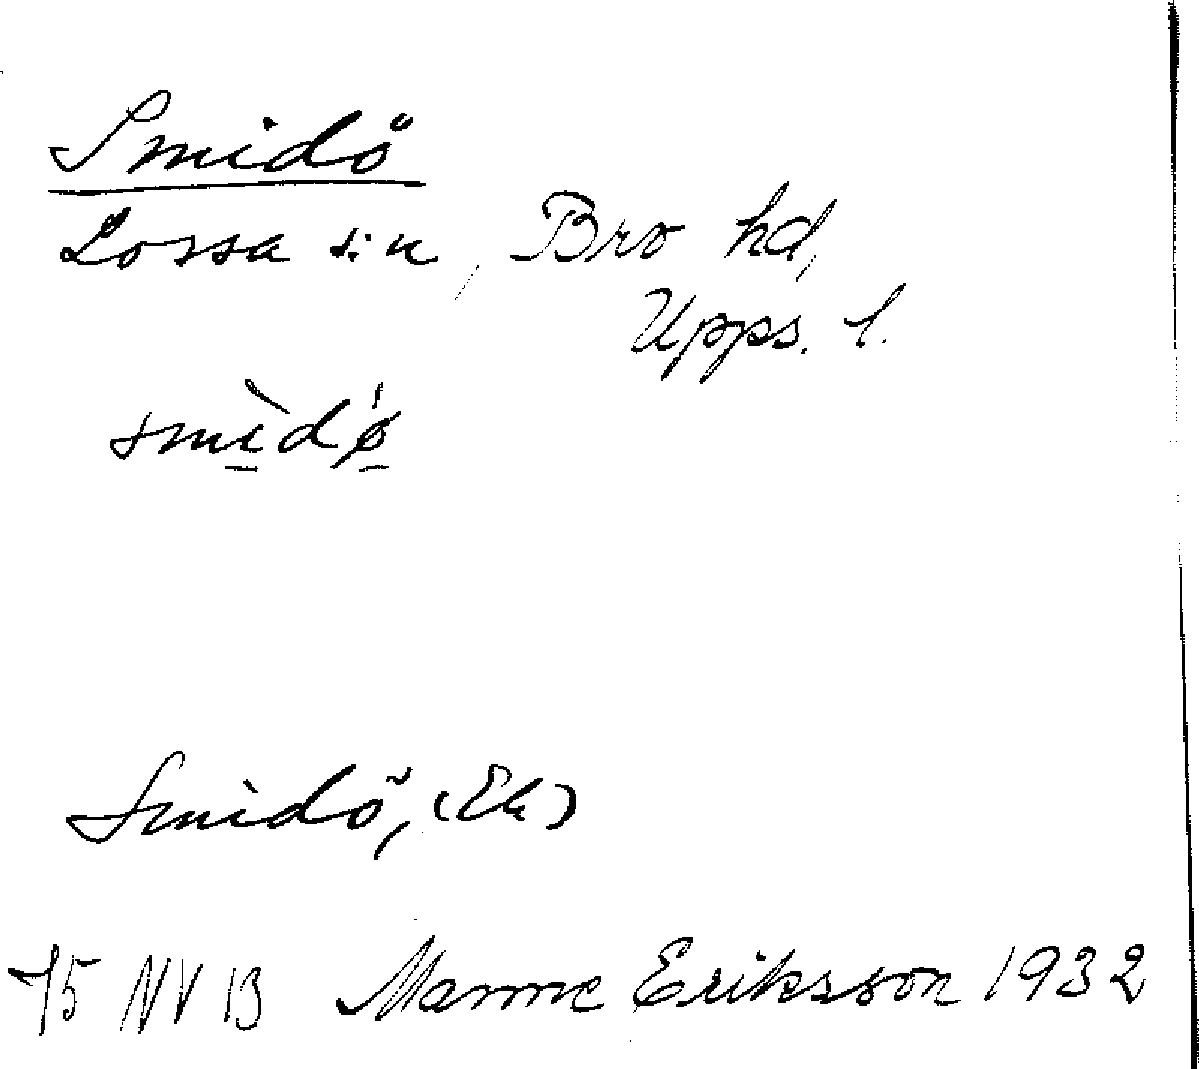 Smidö
Lossa s:n, Bro hd,
Upps. l.
smìdǿ
Smidö, (Ek)
75 NV B Manne Eriksson 1932